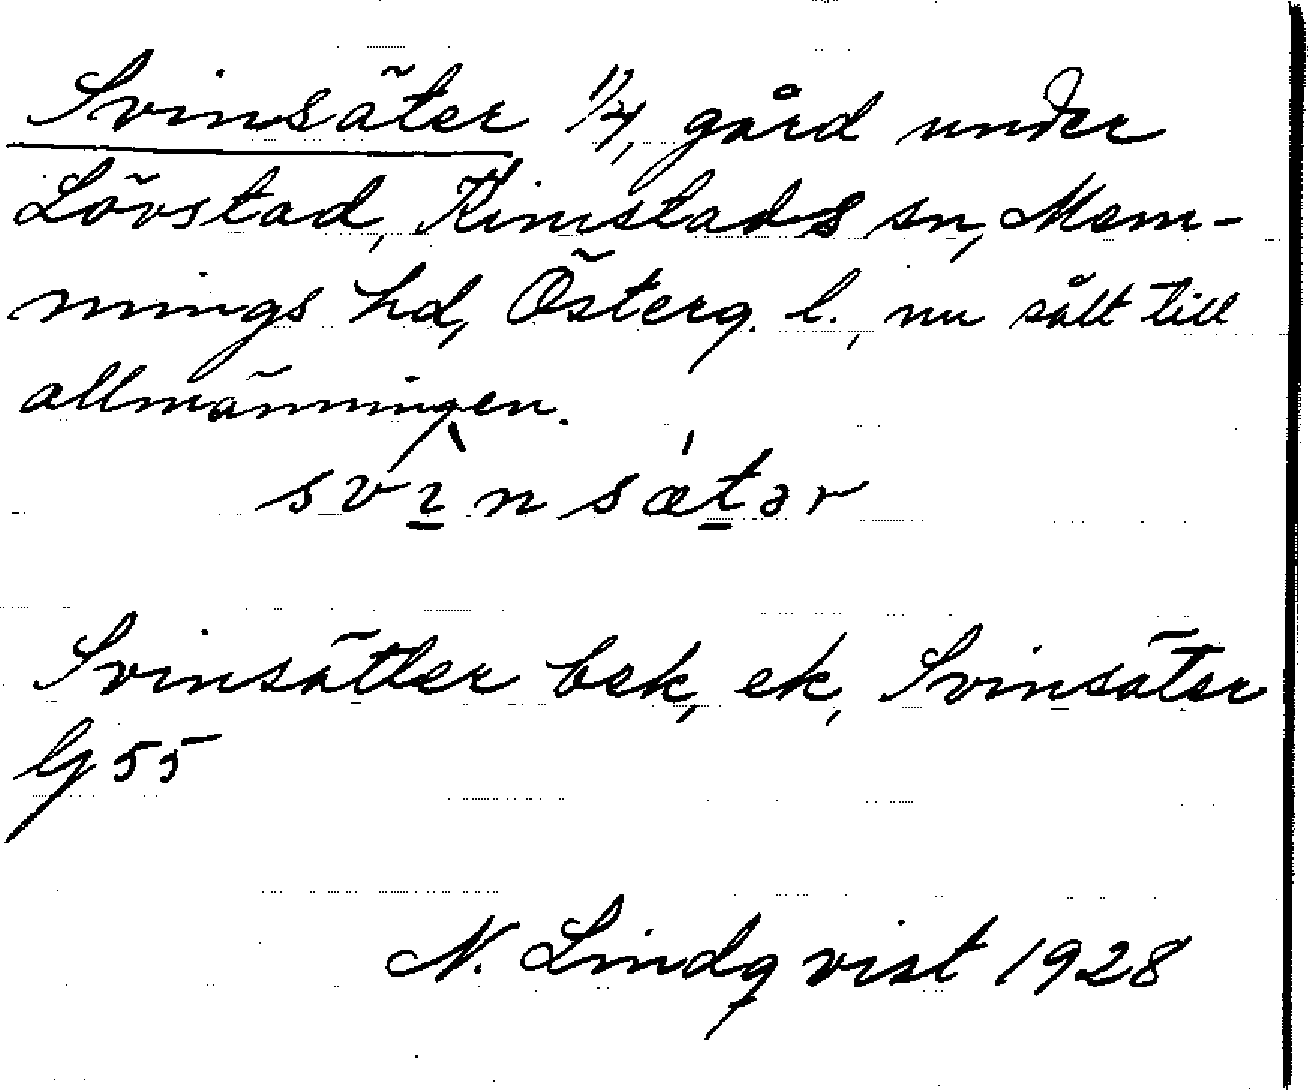 Svinsäter 1/4, gård under
Lövstad, Kimstads sn, Mem-
mings hd, Österg. l., nu sålt till
allmänningen.
svì̱nsæ´ṯər
Svinsätter bek, ek, Svinsäter
G 55
N. Lindqvist 1928